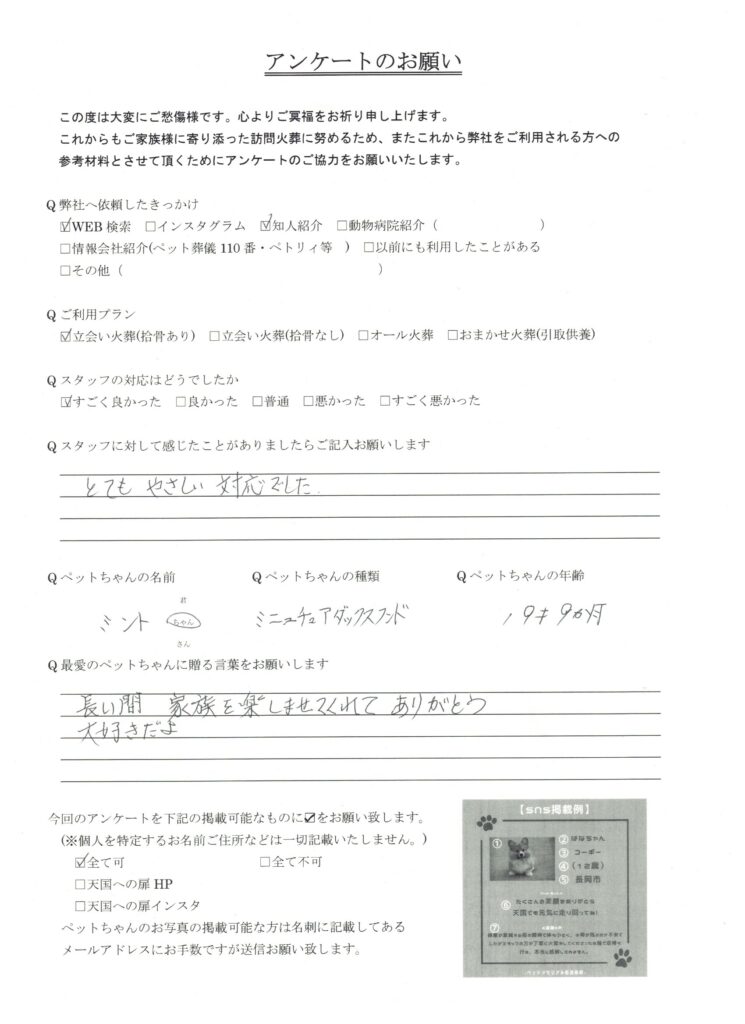 アンケートのお願い
この度は大変にご愁傷様です。心よりご冥福をお祈り申し上げます。
これからもご家族様に寄り添った訪問火葬に努めるため、またこれから弊社をご利用される方への
参考材料とさせて頂くためにアンケートのご協力をお願いいたします。
Q 弊社へ依頼したきっかけ
☑WEB 検索 □インスタグラム ☑知人紹介 □動物病院紹介（ ）
□情報会社紹介(ペット葬儀 110 番・ペトリィ等 ) □以前にも利用したことがある
□その他（ ）
Q ご利用プラン
☑立会い火葬(拾骨あり) □立会い火葬(拾骨なし) □オール火葬 □おまかせ火葬(引取供養)
Q スタッフの対応はどうでしたか
☑すごく良かった □良かった □普通 □悪かった □すごく悪かった
Q スタッフに対して感じたことがありましたらご記入お願いします
とても やさしい 対応でした.
Q ペットちゃんの名前 Q ペットちゃんの種類 Q ペットちゃんの年齢
君
ミント ちゃん ミニュチュアダックスフンド 9才 9か月
さん
Q 最愛のペットちゃんに贈る言葉をお願いします
長い間 家族を楽しませてくれて ありがとう
大好きだよ
今回のアンケートを下記の掲載可能なものに☑をお願い致します。
(※個人を特定するお名前ご住所などは一切記載いたしません。)
☑全て可 □全て不可
□天国への扉 HP
□天国への扉インスタ
ペットちゃんのお写真の掲載可能な方は名刺に記載してある
メールアドレスにお手数ですが送信お願い致します。
【sns掲載例】
① ② はなちゃん
③ コーギー
④ (12歳)
⑤ 長岡市
⑥ たくさんの笑顔をありがとう
天国でも元気に走り回ってね!
⑦